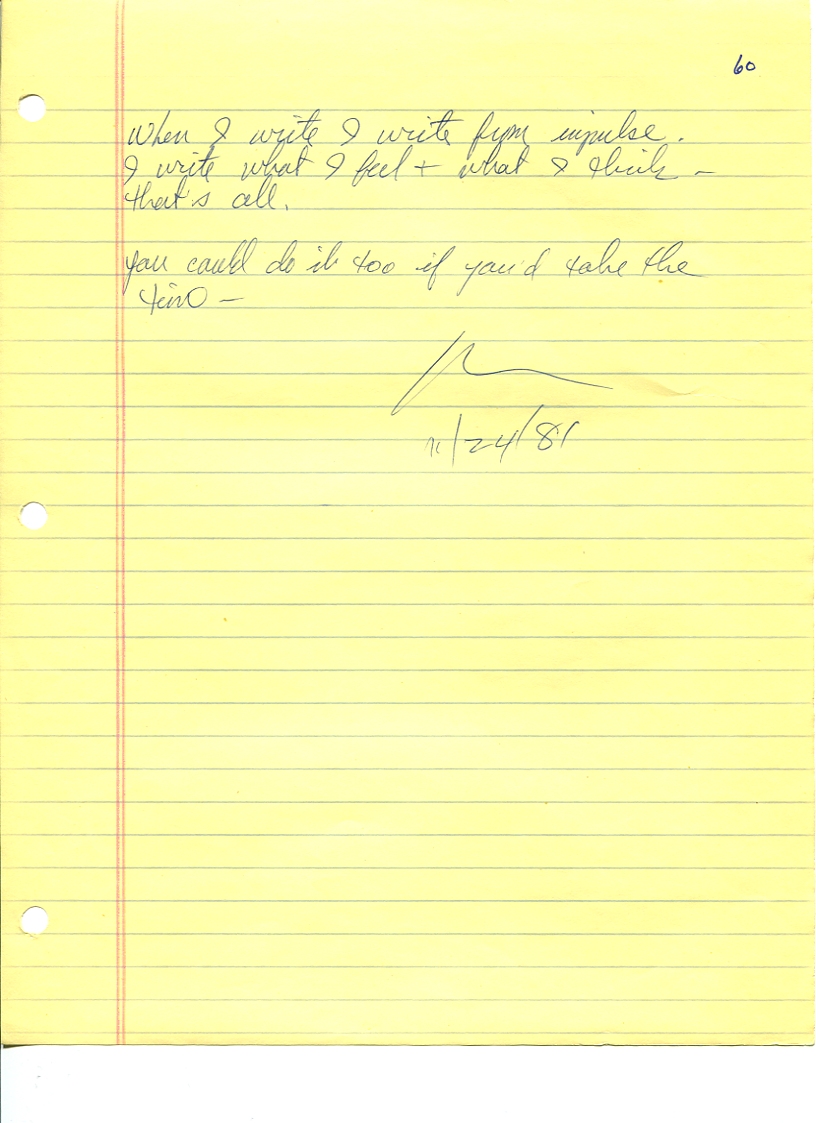 60
When I write I write from impulse.
I write what I feel + what I think –
that's all.
you could do it too if you'd take the
time –
11/24/81